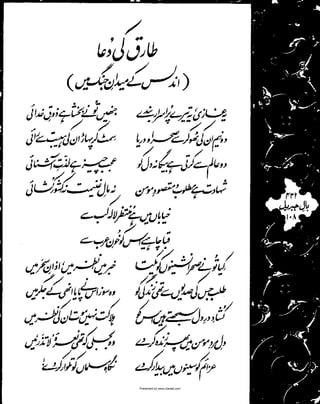 طارق کی دُعا
(اندلس کے میدانِ جنگ میں)
یہ غازی، یہ تیرے پُر اسرار بندے جنھیں تُو نے بخشا ہے ذوقِ خدائی
دو نیم ان کی ٹھوکر سے صحرا و دریا سمٹ کر پہاڑ ان کی ہیبت سے رائی
دو عالم سے کرتی ہے بیگانہ دل کو عجب چیز ہے لذّتِ آشنائی
شہادت ہے مطلوب و مقصودِ مومن نہ مالِ غنیمت نہ کشور کشائی
خیاباں میں ہے منتظر لالہ کب سے
قبا چاہیے اس کو خونِ عرب سے
کیا تُو نے صحرا نشینوں کو یکتا خبر میں، نظر میں، اذانِ سحر میں
طلب جس کی صدیوں سے تھی زندگی کو وہ سوز اس نے پایا انھی کے جگر میں
کشادِ درِ دل سمجھتے ہیں اس کو ہلاکت نہیں موت ان کی نظر میں
دلِ مردِ مومن میں پھر زندہ کر دے وہ بجلی کہ تھی نعرۂ لاتذر میں
عزائم کو سینوں میں بیدار کر دے
نگاہِ مسلماں کو تلوار کر دے
۴۳۲
بالِ جبریل
۱۰۸
Presented by www.ziaraat.com